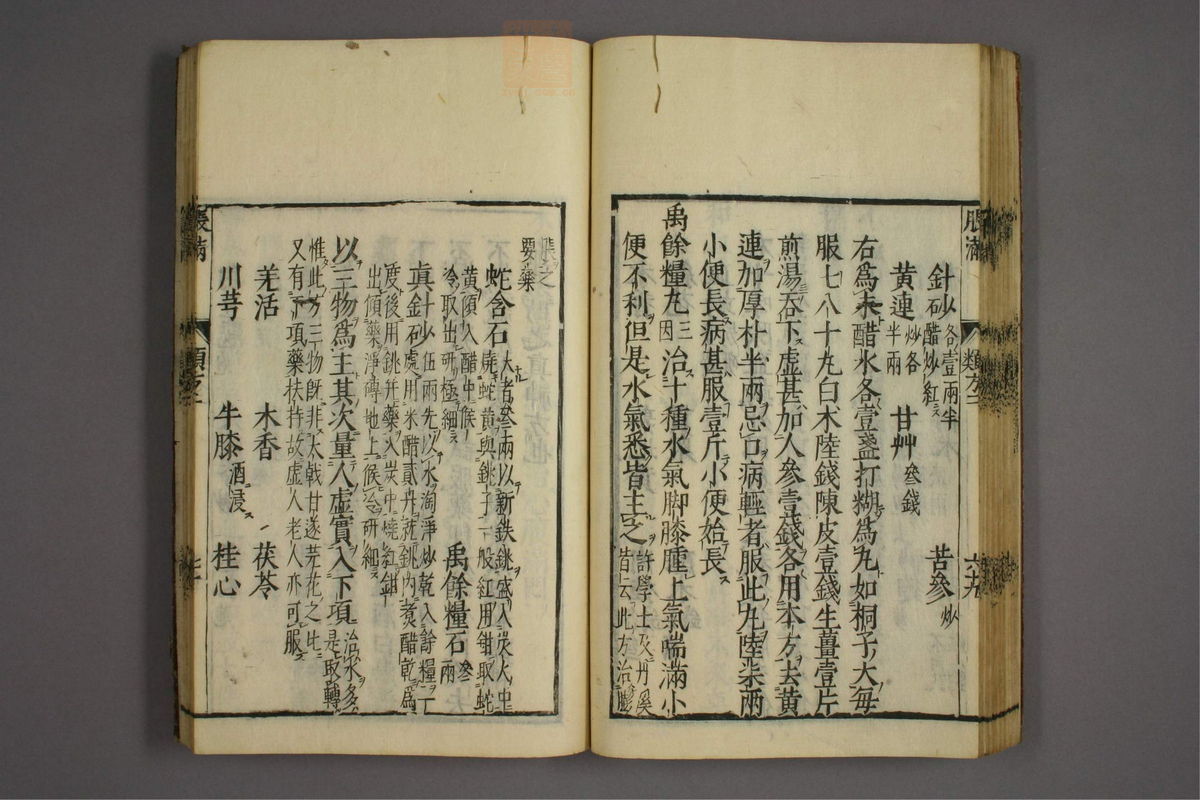 脹滿 類方二 六十九
針砂 各壹兩半 醋炒紅 苦參 炒
黄連 炒各半兩 甘艸 參錢
右爲末醋水各壹盞打糊爲丸如桐子大毎
服七八十丸白朮陸錢陳皮壹錢生薑壹片
煎湯吞下虚甚加人參壹錢各用本方去黄
連加厚朴半兩忌口病輕者服此丸陸柒兩
小便長病甚服壹斤小便始長
禹餘糧丸 三因 治十種水氣脚膝腫上氣喘滿小
便不利但是水氣悉皆主之 許學士及丹溪皆云此方治膨
脹之要藥
蛇含石 大者參兩以新鉄銚盛入炭火中燒蛇黄與銚子一般紅用鉗取蛇
黄傾入醋中候冷取出研極細 禹餘糧石 參兩
真針砂 伍兩先以水淘淨炒乾入餘糧一處用米醋貳升就銚內煑醋乾爲
度後用銚并藥入炭中燒紅鉗出傾藥淨磚地上候冷研細
以三物爲主其次量人虚實入下項 治水多是取轉
惟此方三物旣非大戟甘遂芫花之比
又有下項藥扶持故虚人老人亦可服
羌活 木香 茯苓
川芎 牛膝 酒浸 桂心
脹滿 類方二 七十